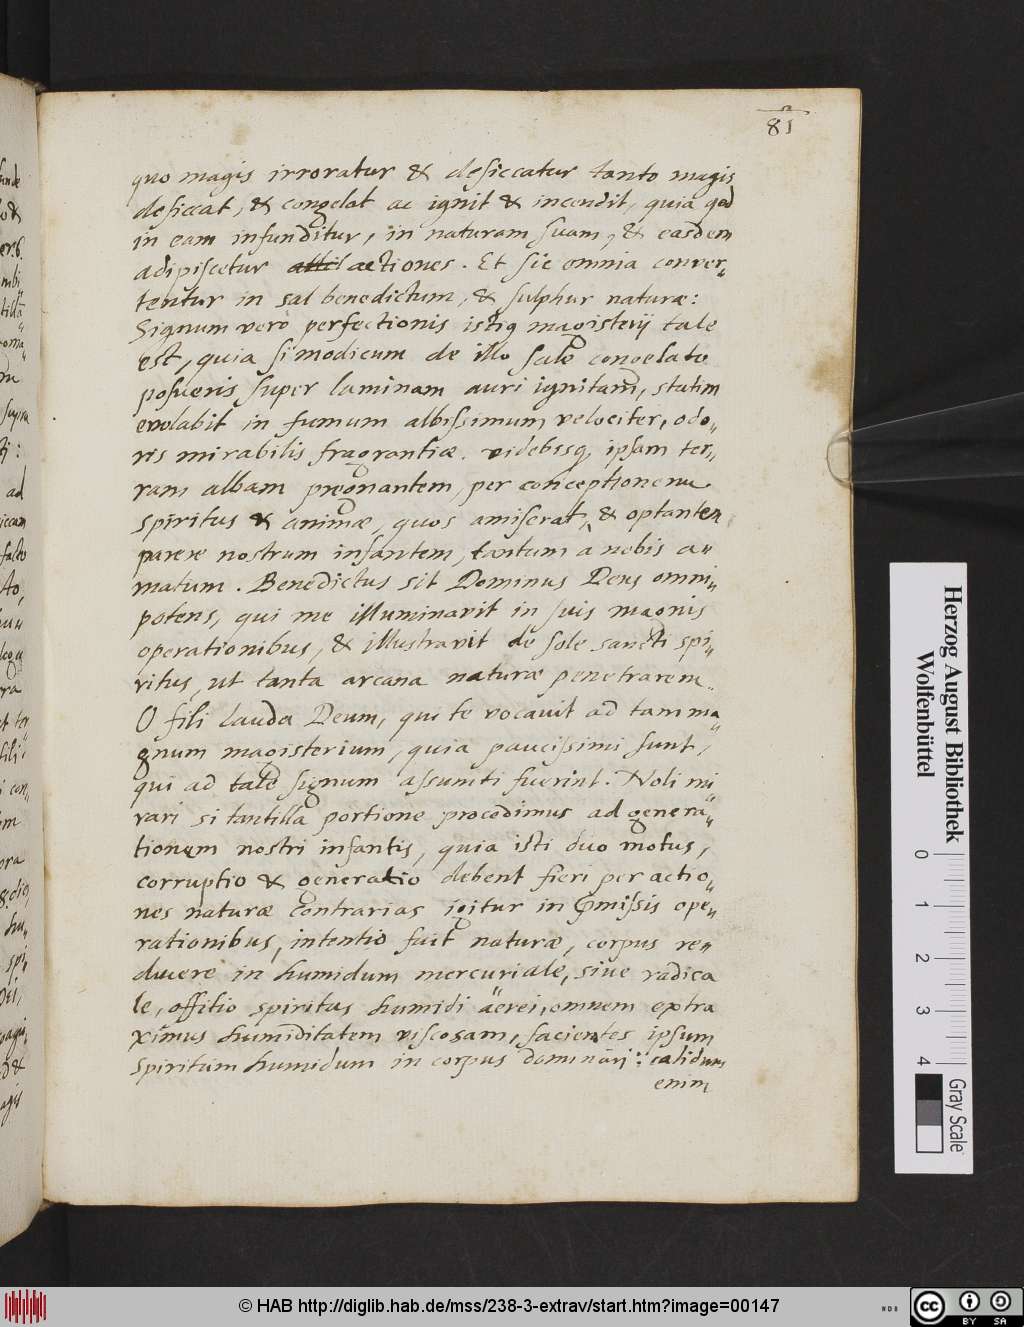 81
quo magis irroratur & desiccatur tanto magis
desiccat, & congelat ac ignit & incendit, quia qod
in eam infunditur, in naturam suam, & easdem
adipiscetur actiones. Et sic omnia conver„
tentur in sal benedictum, & sulphur naturæ:
Signum verò perfectionis istiq magisterij tale
est, quia si modicum de illo sale congelato
posueris super laminam auri ignitam, statim
evolabit in fumum albissimum velociter, odo„
ris mirabilis fragrantiæ. videbisq, ipsam ter„
ram albam pregnantem, per conceptionem
spiritus & animæ, quos amiserat, & optantem
parere nostrum infantem, tantum à nobis a„
matum. Benedictus sit Dominus Deus omni„
potens, qui me illuminavit in suis magnis
operationibus, & illustravit de sole sancti spi„
ritus, ut tanta arcana naturæ penetrarem.
O fili lauda Deum, qui te vocavit ad tam ma„
gnum magisterium, quia paucissimi sunt,
qui ad tale signum assumti fuerint. Noli mi„
rari si tantilla portione procedimus ad genera„
tionem nostri infantis, quia isti duo motus,
corruptio & generatio debent fieri per actio„
nes naturæ contrarias igitur in pmissis ope„
rationibus, intentio fuit naturæ, corpus re„
ducere in humidum mercuriale, sive radica
le, offitio spiritus humidi äerei, omnem extra
ximus humiditatem viscosam, facientes ipsum
spiritum humidum in corpus dominari: calidum
enim
Herzog August Bibliothek
Wolfenbüttel
0 1 2 3 4
Gray Scale
© HAB http://diglib.hab.de/mss/238-3-extrav/start.htm?image=00147
cc BY SA